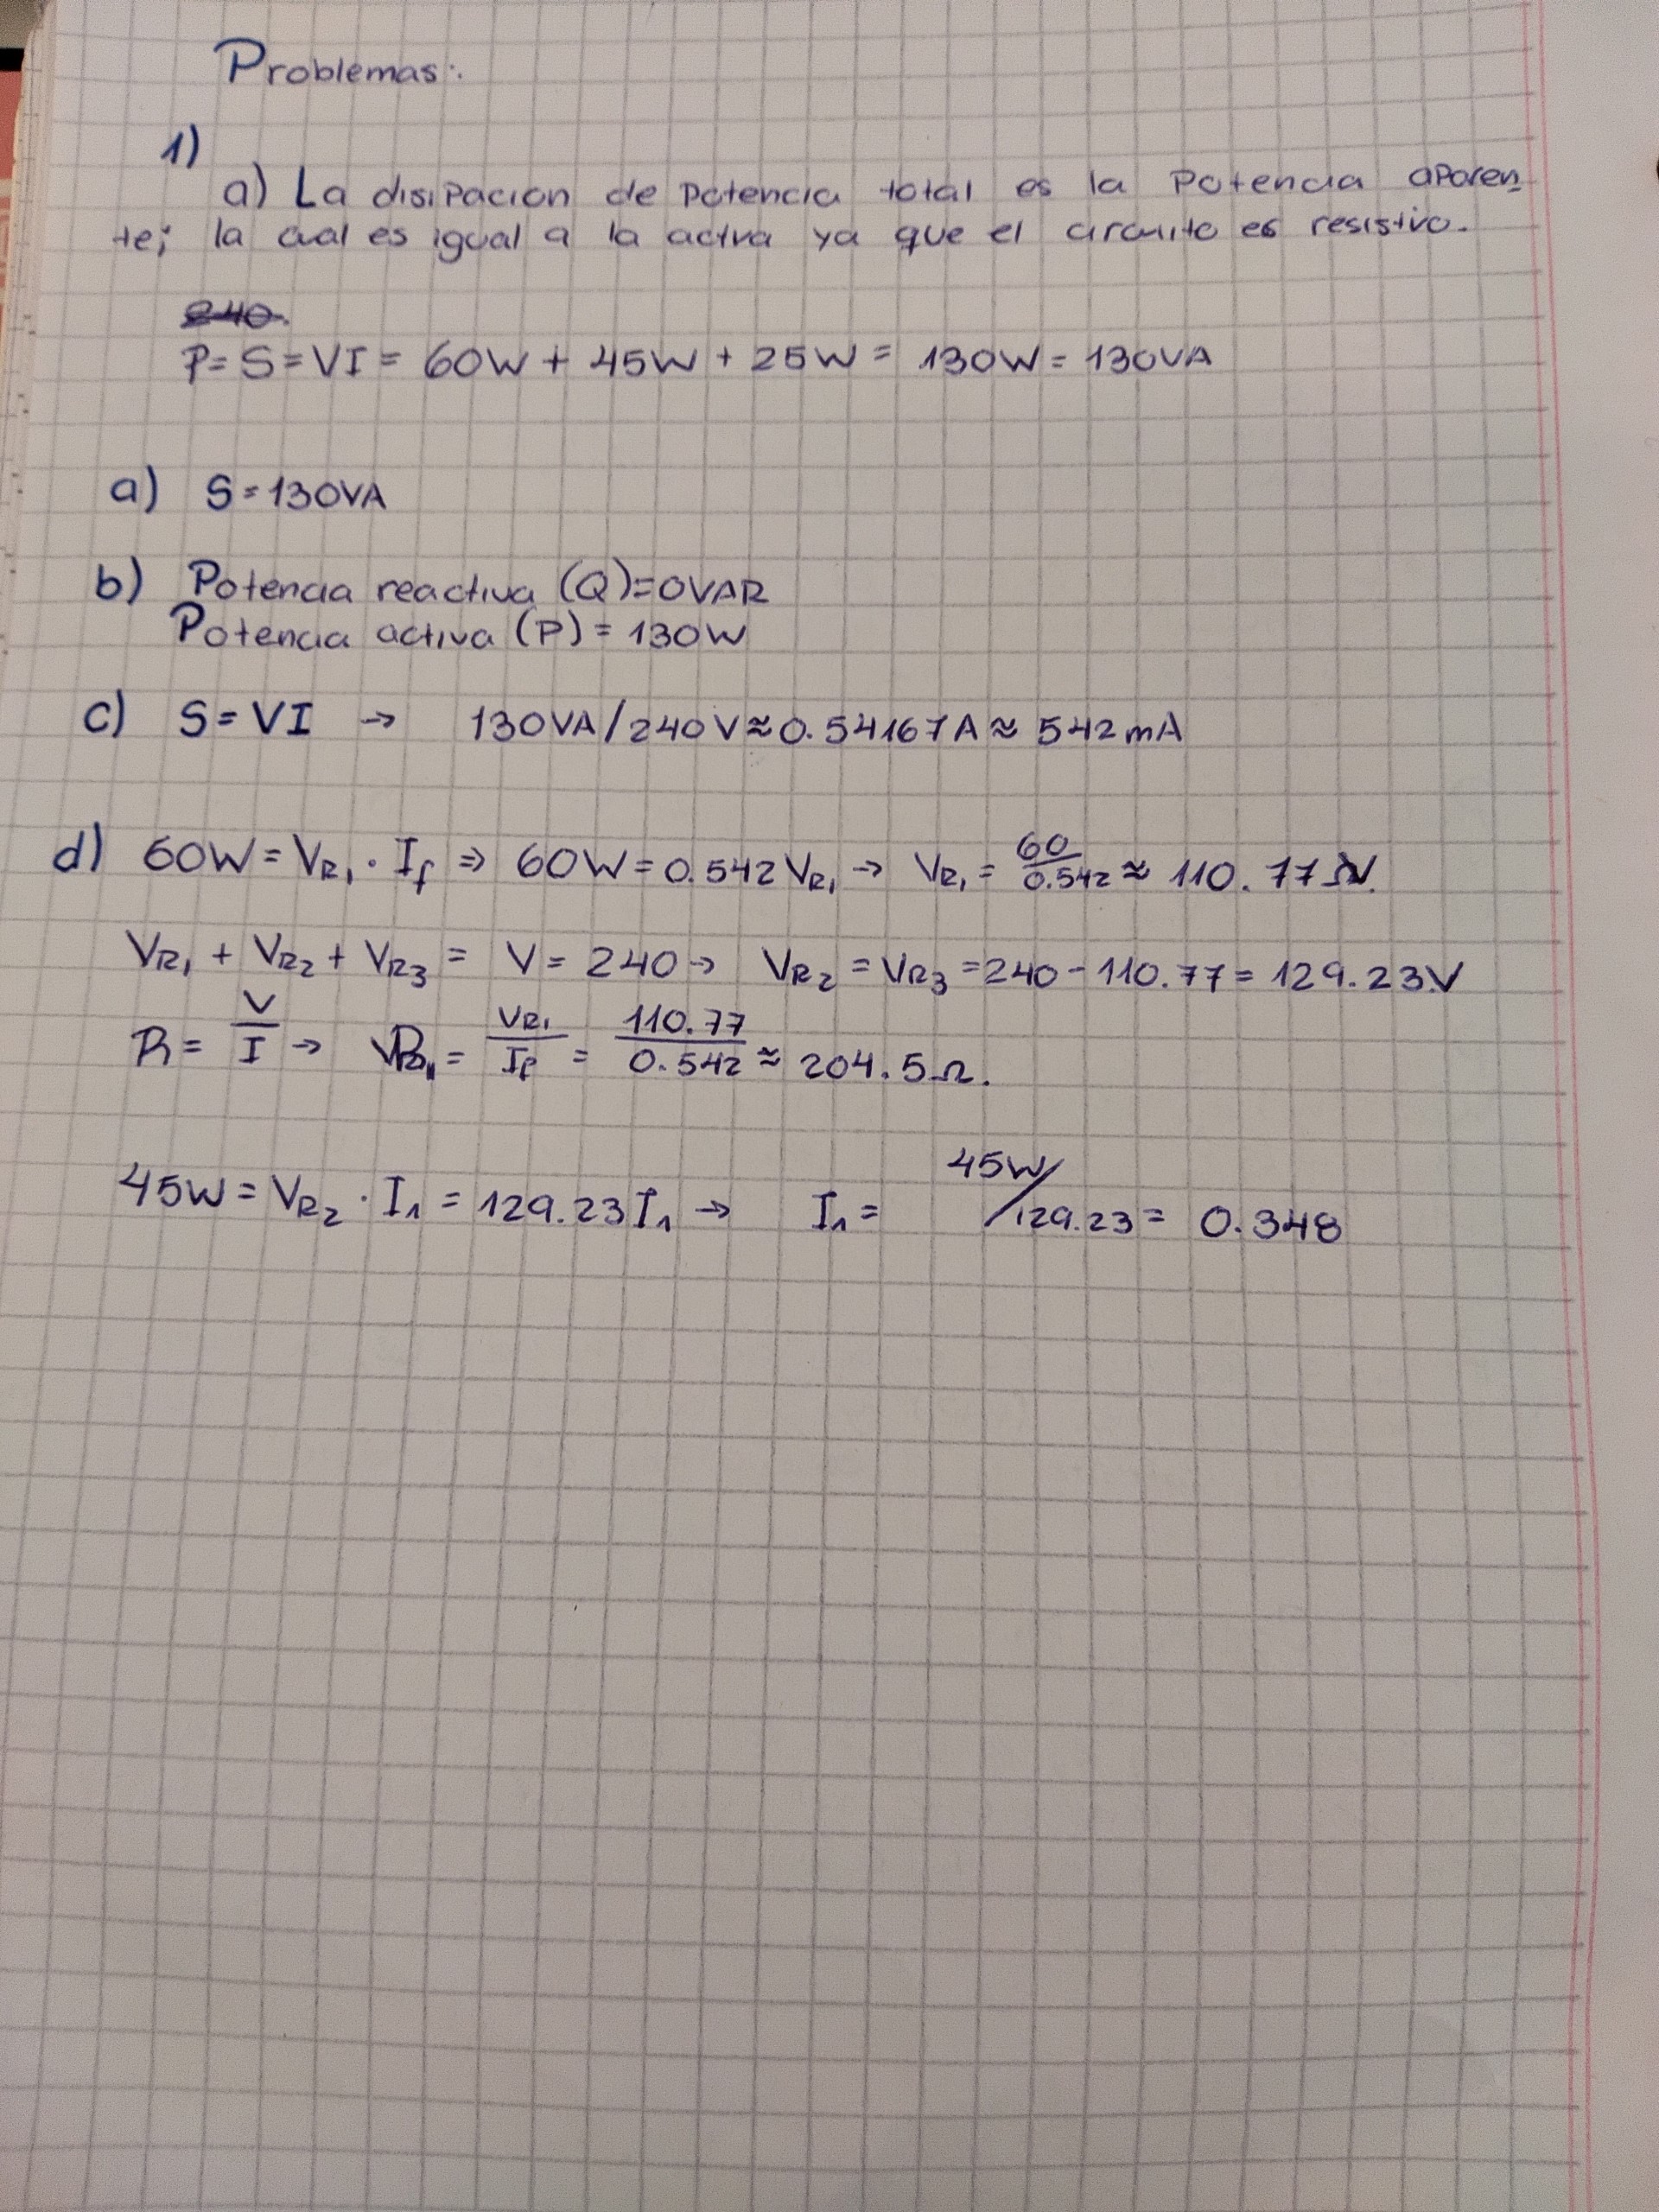 Problemas:
1)
a) La disipacion de potencia total es la Potencia aparen
te; la cual es igual a la activa ya que el circuito es resistivo.
240
P= S = VI = 60W + 45W + 25W = 130W = 130VA
a) S = 130VA
b) Potencia reactiva (Q)=0VAR
Potencia activa (P) = 130W
c) S = VI → 130VA/240V ≈ 0.54167A ≈ 542mA
d) 60W = VR₁ · If ⇒ 60W = 0.542 VR₁ → VR₁ = 60/0.542 ≈ 110.77 V.
VR₁ + VR₂ + VR₃ = V = 240 → VR₂ = VR₃ = 240 - 110.77 = 129.23V
R = V/I → R₁ = VR₁/If = 110.77/0.542 ≈ 204.5Ω.
45W = VR₂ · I₁ = 129.23 I₁ → I₁ = 45W/129.23 = 0.348